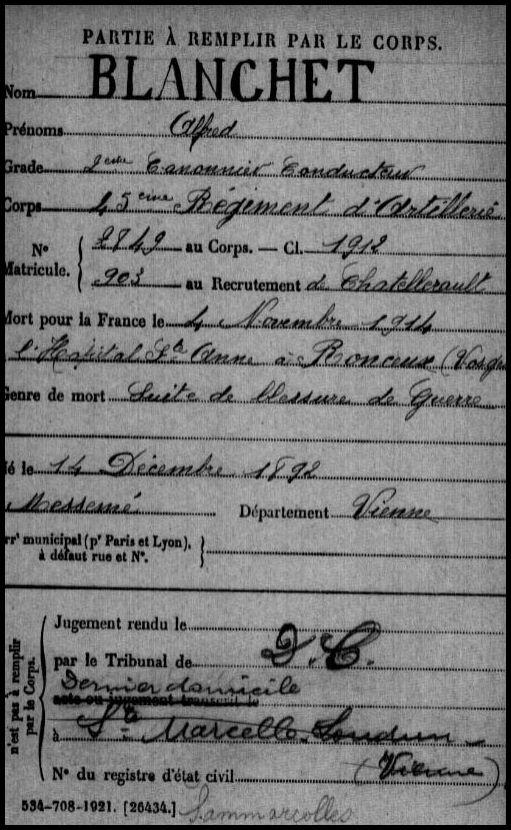 PARTIE À REMPLIR PAR LE CORPS.
Nom BLANCHET
Prénoms Alfred
Grade 2eme Canonnier Conducteur
Corps 45eme Régiment d'Artillerie
N° Matricule. { 2749 au Corps. — Cl. 1912
903 au Recrutement de Chatellerault
Mort pour la France le 4 Novembre 1914
l'Hôpital Ste Anne à Ronceux (Vosges
Genre de mort Suite de blessure de Guerre
Né le 14 Décembre 1892
Messemé Département Vienne
arrt municipal (pr Paris et Lyon), à défaut rue et N°. }
n'est pas à remplir par le Corps.
Jugement rendu le
par le Tribunal de D.C.
Dernier domicile
acte ou jugement transcrit le
à Ste Marcelle Loudun
(Vienne)
N° du registre d'état civil
534-708-1921. [26434.] Sammarcolles